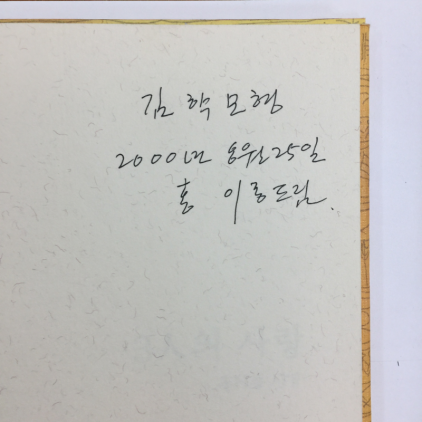 김학모형
2000년 8월 25일
홍 이룡드림.